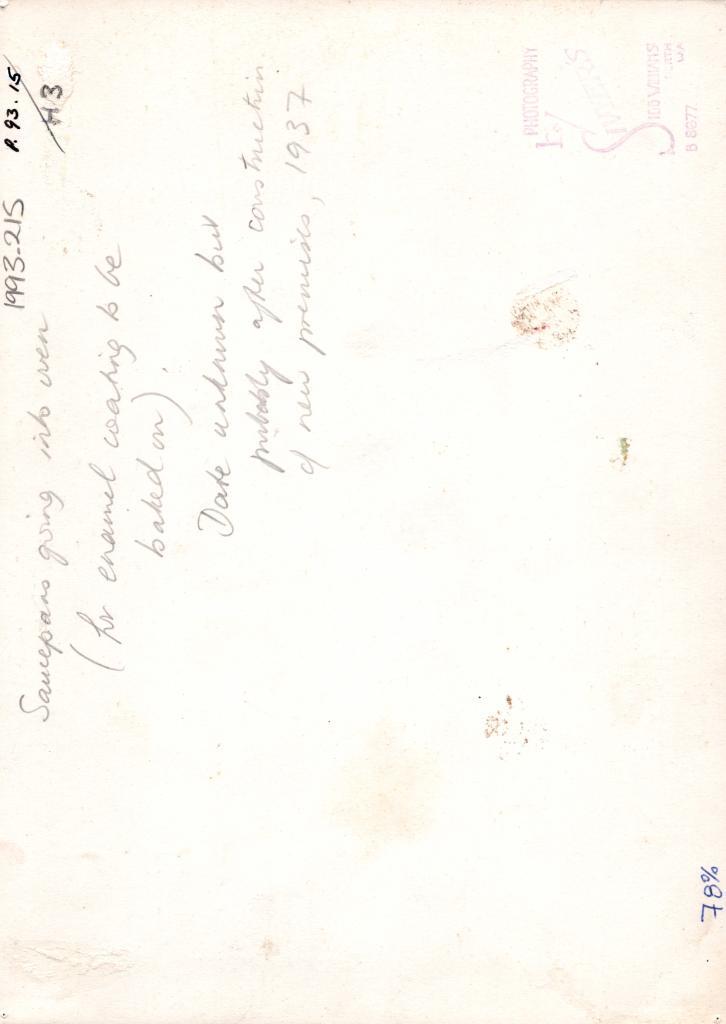 P.93.15
H3
1993-215
Saucepans going into oven
(for enamel coating to be
baked on).
Date unknown but
probably after construction
of new premises, 1937
PHOTOGRAPHY
BY
WA
B 8677
78%